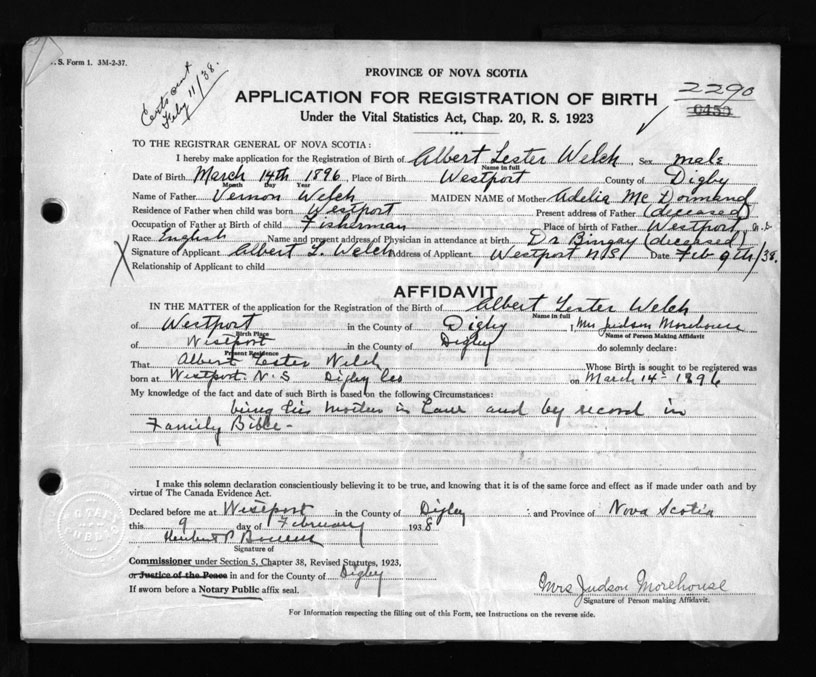 . S. Form 1. 3M-2-37.
Certs out
Feby 11/38.
PROVINCE OF NOVA SCOTIA
APPLICATION FOR REGISTRATION OF BIRTH
Under the Vital Statistics Act, Chap. 20, R. S. 1923
2290
0459
TO THE REGISTRAR GENERAL OF NOVA SCOTIA:
I hereby make application for the Registration of Birth of Albert Lester Welch Sex male
Name in full
Date of Birth March 14th 1896, Place of Birth Westport County of Digby
Month Day Year
Name of Father Vernon Welch MAIDEN NAME of Mother Adelia Mc Dormand
Residence of Father when child was born Westport Present address of Father (deceased)
Occupation of Father at Birth of child Fisherman Place of birth of Father Westport N.S.
Race English Name and present address of Physician in attendance at birth Dr Bingay (deceased)
Signature of Applicant Albert L. Welch Address of Applicant Westport N S Date Feb 9th/38.
Relationship of Applicant to child
AFFIDAVIT
IN THE MATTER of the application for the Registration of the Birth of Albert Lester Welch
Name in full
of Westport in the County of Digby I, Mrs Judson Morehouse
Birth Place Name of Person Making Affidavit
of Westport in the County of Digby do solemnly declare:
Present Residence
That Albert Lester Welch Whose Birth is sought to be registered was
born at Westport. N. S Digby Co on March 14- 1896
My knowledge of the fact and date of such Birth is based on the following Circumstances:
being his mother in Law and by record in
Family Bible-
I make this solemn declaration conscientiously believing it to be true, and knowing that it is of the same force and effect as if made under oath and by
virtue of The Canada Evidence Act.
Declared before me at Westport in the County of Digby and Province of Nova Scotia
this 9 day of February 1938
Herbert P
Signature of
Commissioner under Section 5, Chapter 38, Revised Statutes, 1923,
or Justice of the Peace in and for the County of Digby
If sworn before a Notary Public affix seal.
Mrs Judson Morehouse
Signature of Person making Affidavit.
For Information respecting the filling out of this Form, see Instructions on the reverse side.